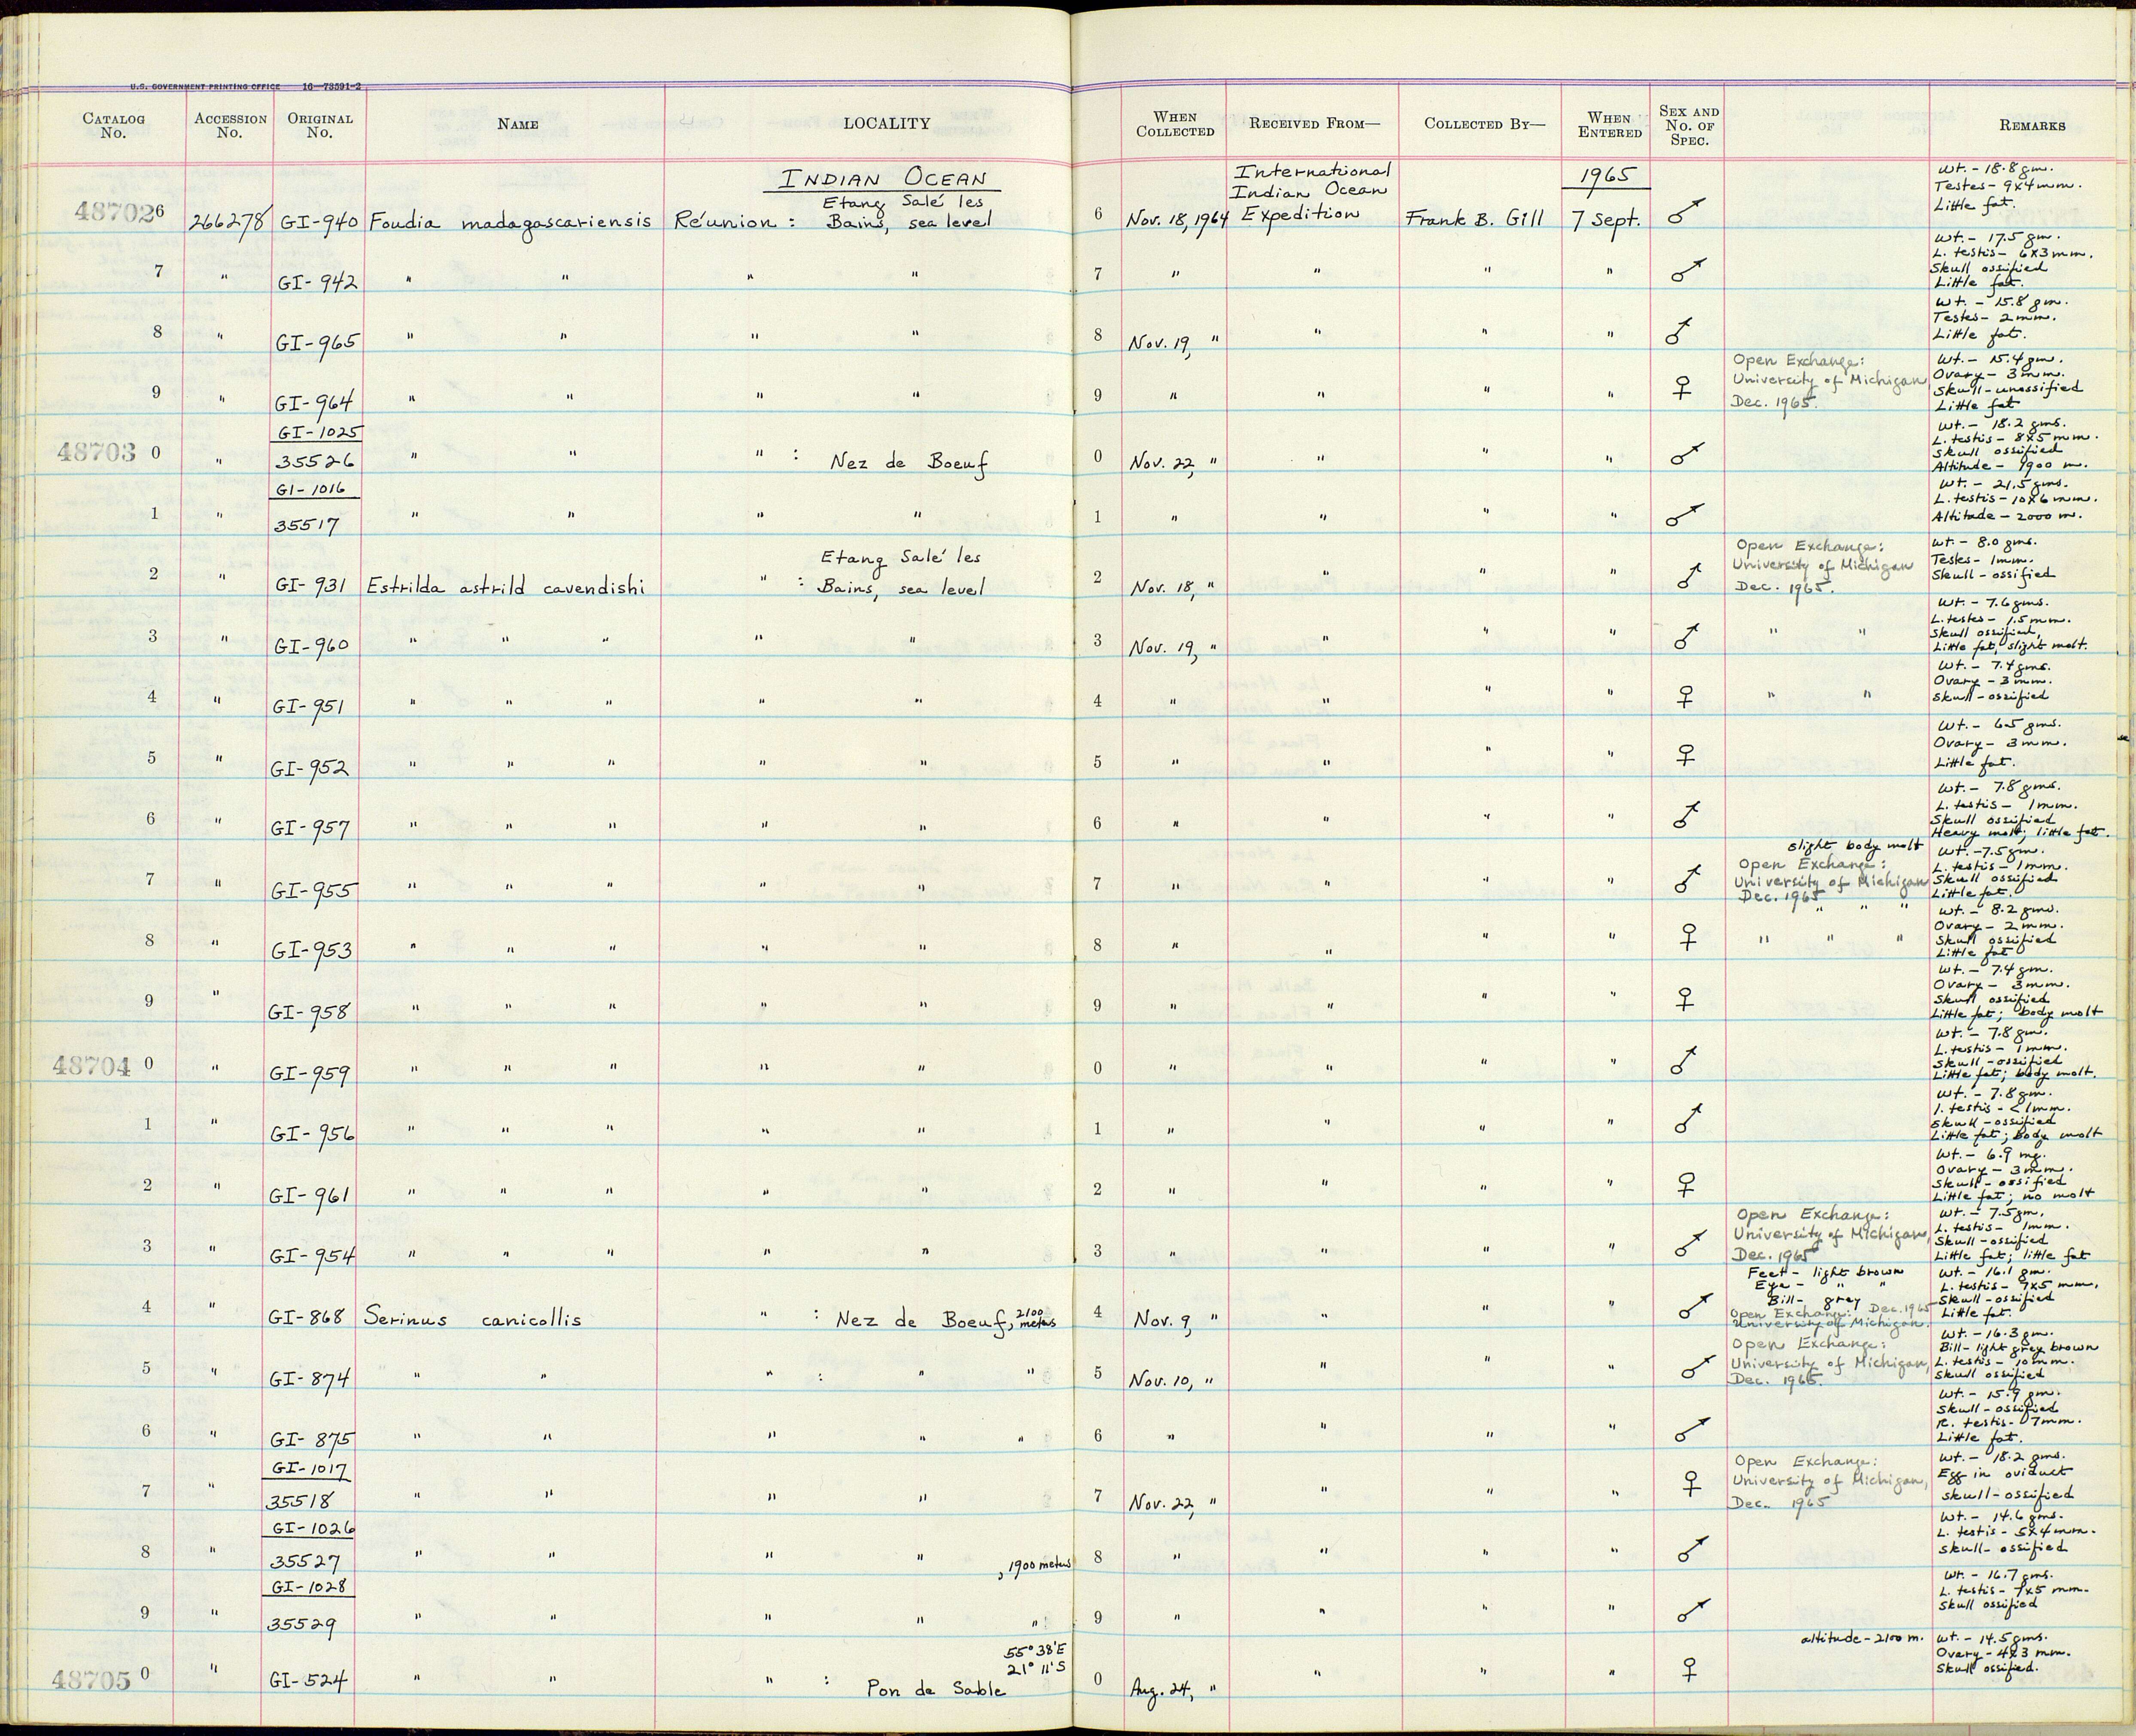 U.S. GOVERNMENT PRINTING OFFICE 16—73591-2
CATALOG No. ACCESSION No. ORIGINAL No. NAME LOCALITY WHEN COLLECTED RECEIVED FROM— COLLECTED BY— WHEN ENTERED SEX AND No. OF SPEC. REMARKS
INDIAN OCEAN International Indian Ocean 1965
48702 6 266278 GI-940 Foudia madagascariensis Réunion : Etang Salé les Bains, sea level 6 Nov. 18, 1964 Expedition Frank B. Gill 7 Sept. ♂ Wt. - 18.8 gm. Testes - 9x4 mm. Little fat.
7 " GI-942 " " " " 7 " " " " ♂ Wt. - 17.5 gm. L. testis - 6x3 mm. Skull ossified Little fat.
8 " GI-965 " " " " 8 Nov. 19, " " " " ♂ Wt. - 15.8 gm. Testes - 2 mm. Little fat.
9 " GI-964 " " " " 9 " " " " ♀ Open Exchange: University of Michigan, Dec. 1965. Wt. - 15.4 gm. Ovary - 3 mm. Skull - unossified Little fat
48703 0 " GI-1025 35526 " " " : Nez de Boeuf 0 Nov. 22, " " " " ♂ Wt. - 18.2 gms. L. testis - 8x5 mm. Skull ossified Altitude - 1900 m.
1 " GI-1016 35517 " " " " 1 " " " " ♂ Wt. - 21.5 gms. L. testis - 10x6 mm. Altitude - 2000 m.
2 " GI-931 Estrilda astrild cavendishi " : Etang Salé les Bains, sea level 2 Nov. 18, " " " " ♂ Open Exchange: University of Michigan Dec. 1965. Wt. - 8.0 gms. Testes - 1mm. Skull - ossified
3 " GI-960 " " " " " 3 Nov. 19, " " " " ♂ " " Wt. - 7.6 gms. L. testes - 1.5 mm. Skull ossified, Little fat, slight molt.
4 " GI-951 " " " " " 4 " " " " ♀ " " Wt. - 7.4 gms. Ovary - 3 mm. Skull - ossified
5 " GI-952 " " " " " 5 " " " " ♀ Wt. - 6.5 gms. Ovary - 3 mm. Little fat.
6 " GI-957 " " " " " 6 " " " " ♂ Wt. - 7.8 gms. L. testis - 1mm. Skull ossified Heavy molt; little fat.
7 " GI-955 " " " " " 7 " " " " ♂ slight body molt Open Exchange: University of Michigan Dec. 1965 Wt. - 7.5 gm. L. testis - 1mm. Skull ossified Little fat.
8 " GI-953 " " " " " 8 " " " " ♀ " " " " " " Wt. - 8.2 gms. Ovary - 2 mm. Skull ossified Little fat
9 " GI-958 " " " " " 9 " " " " ♀ Wt. - 7.4 gm. Ovary - 3 mm. Skull ossified Little fat; body molt
48704 0 " GI-959 " " " " " 0 " " " " ♂ Wt. - 7.8 gm. L. testis - 1 mm. Skull - ossified Little fat; body molt.
1 " GI-956 " " " " " 1 " " " " ♂ Wt. - 7.8 gm. l. testis - <1mm. Skull - ossified Little fat; Body molt
2 " GI-961 " " " " " 2 " " " " ♀ Wt. - 6.9 mg. Ovary - 3 mm. Skull - ossified Little fat; no molt
3 " GI-954 " " " " " 3 " " " " ♂ Open Exchange: University of Michigan, Dec. 1965 Wt. - 7.5 gm. L. testis - 1mm. Skull - ossified Little fat; little fat
4 " GI-868 Serinus canicollis " : Nez de Boeuf, 2100 meters 4 Nov. 9, " " " " ♂ Feet - light brown Eye - " " Bill - grey Open Exchange: Dec. 1965 University of Michigan. Wt. - 16.1 gm. L. testis - 7x5 mm. Skull - ossified Little fat.
5 " GI-874 " " " : " " 5 Nov. 10, " " " " ♂ Open Exchange: University of Michigan, Dec. 1965. Wt. - 16.3 gm. Bill - light grey brown L. testis - 10 mm. Skull ossified
6 " GI-875 " " " " " 6 " " " " ♂ Wt. - 15.9 gm. Skull - ossified R. testis - 7mm. Little fat.
7 " GI-1017 35518 " " " " 7 Nov. 22, " " " " ♀ Open Exchange: University of Michigan, Dec. 1965 Wt. - 18.2 gms. Egg in oviduct skull - ossified
8 " GI-1026 35527 " " " " , 1900 meters 8 " " " " ♂ Wt. - 14.6 gms. L. testis - 5x4 mm. Skull - ossified
9 " GI-1028 35529 " " " " " 9 " " " " ♂ Wt. - 16.7 gms. L. testis - 7x5 mm. Skull ossified
48705 0 " GI-524 " " " : Pon de Sable 55° 38' E 21° 11' S 0 Aug. 24, " " " " ♀ altitude - 2100 m. Wt. - 14.5 gms. Ovary - 4x3 mm. Skull ossified.